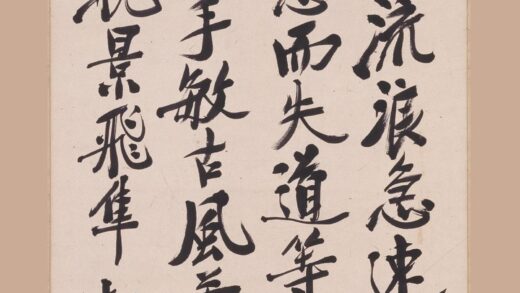 流浪急速
而失道等
手敏古風
景飛隼